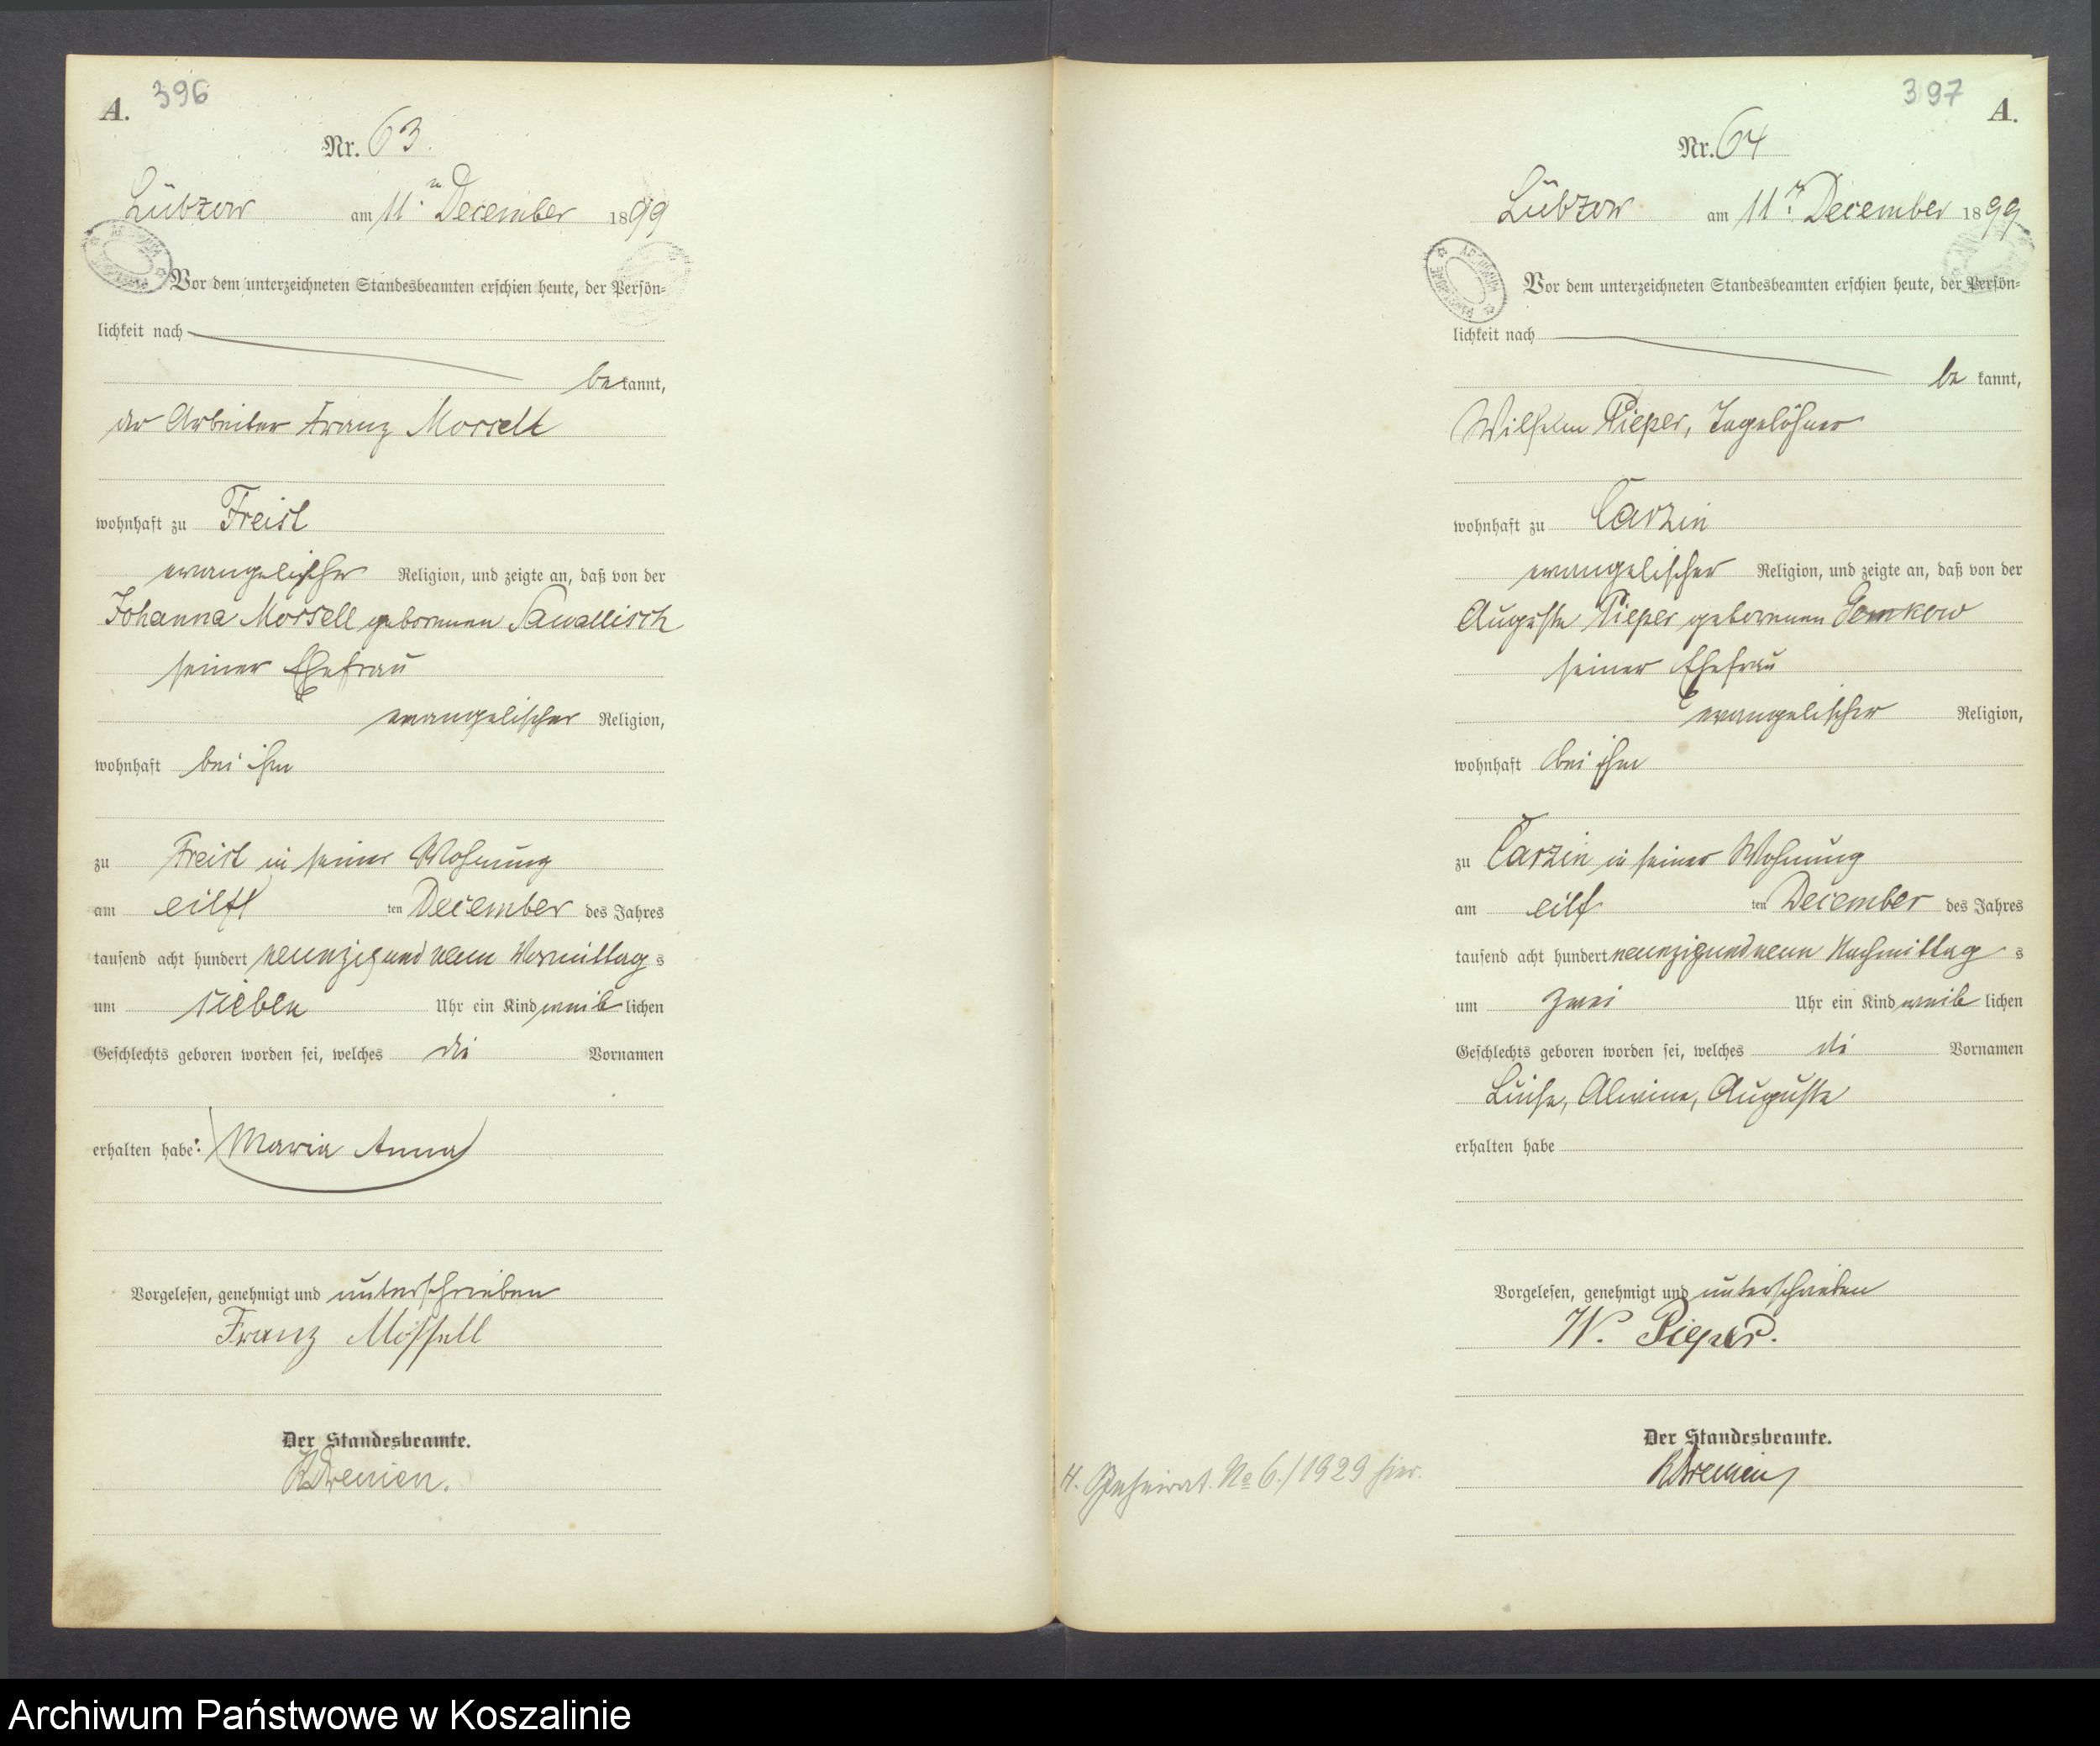 A. 396
Nr. 63.
Lübzow am 11. December 1899
Vor dem unterzeichneten Standesbeamten erschien heute, der Persön-
lichkeit nach
be kannt,
der Arbeiter Franz Morsell
wohnhaft zu Freist
evangelischer Religion, und zeigte an, daß von der
Johanna Morsell geborenen Sawallisch
seiner Ehefrau
evangelischer Religion,
wohnhaft bei ihm
zu Freist in seiner Wohnung
am eilft ten December des Jahres
tausend acht hundert neunzig und neun Vormittag s
um sieben Uhr ein Kind weib lichen
Geschlechts geboren worden sei, welches die Vornamen
erhalten habe: Maria Anna
Vorgelesen, genehmigt und unterschrieben
Franz Mossell
Der Standesbeamte.
397 A.
Nr. 64
Lübzow am 11. December 1899
Vor dem unterzeichneten Standesbeamten erschien heute, der Persön-
lichkeit nach
be kannt,
Wilhelm Pieper, Tagelöhner
wohnhaft zu Carzin
evangelischer Religion, und zeigte an, daß von der
Auguste Pieper geborenen
seiner Ehefrau
evangelischer Religion,
wohnhaft bei ihm
zu Carzin in seiner Wohnung
am eilf ten December des Jahres
tausend acht hundert neunzig und neun Nachmittag s
um zwei Uhr ein Kind weib lichen
Geschlechts geboren worden sei, welches die Vornamen
Luise, Alwine, Auguste
erhalten habe
Vorgelesen, genehmigt und unterschrieben
W. Pieper.
Der Standesbeamte.
H. Geheirat. No 6./1929 hier.
Archiwum Państwowe w Koszalinie